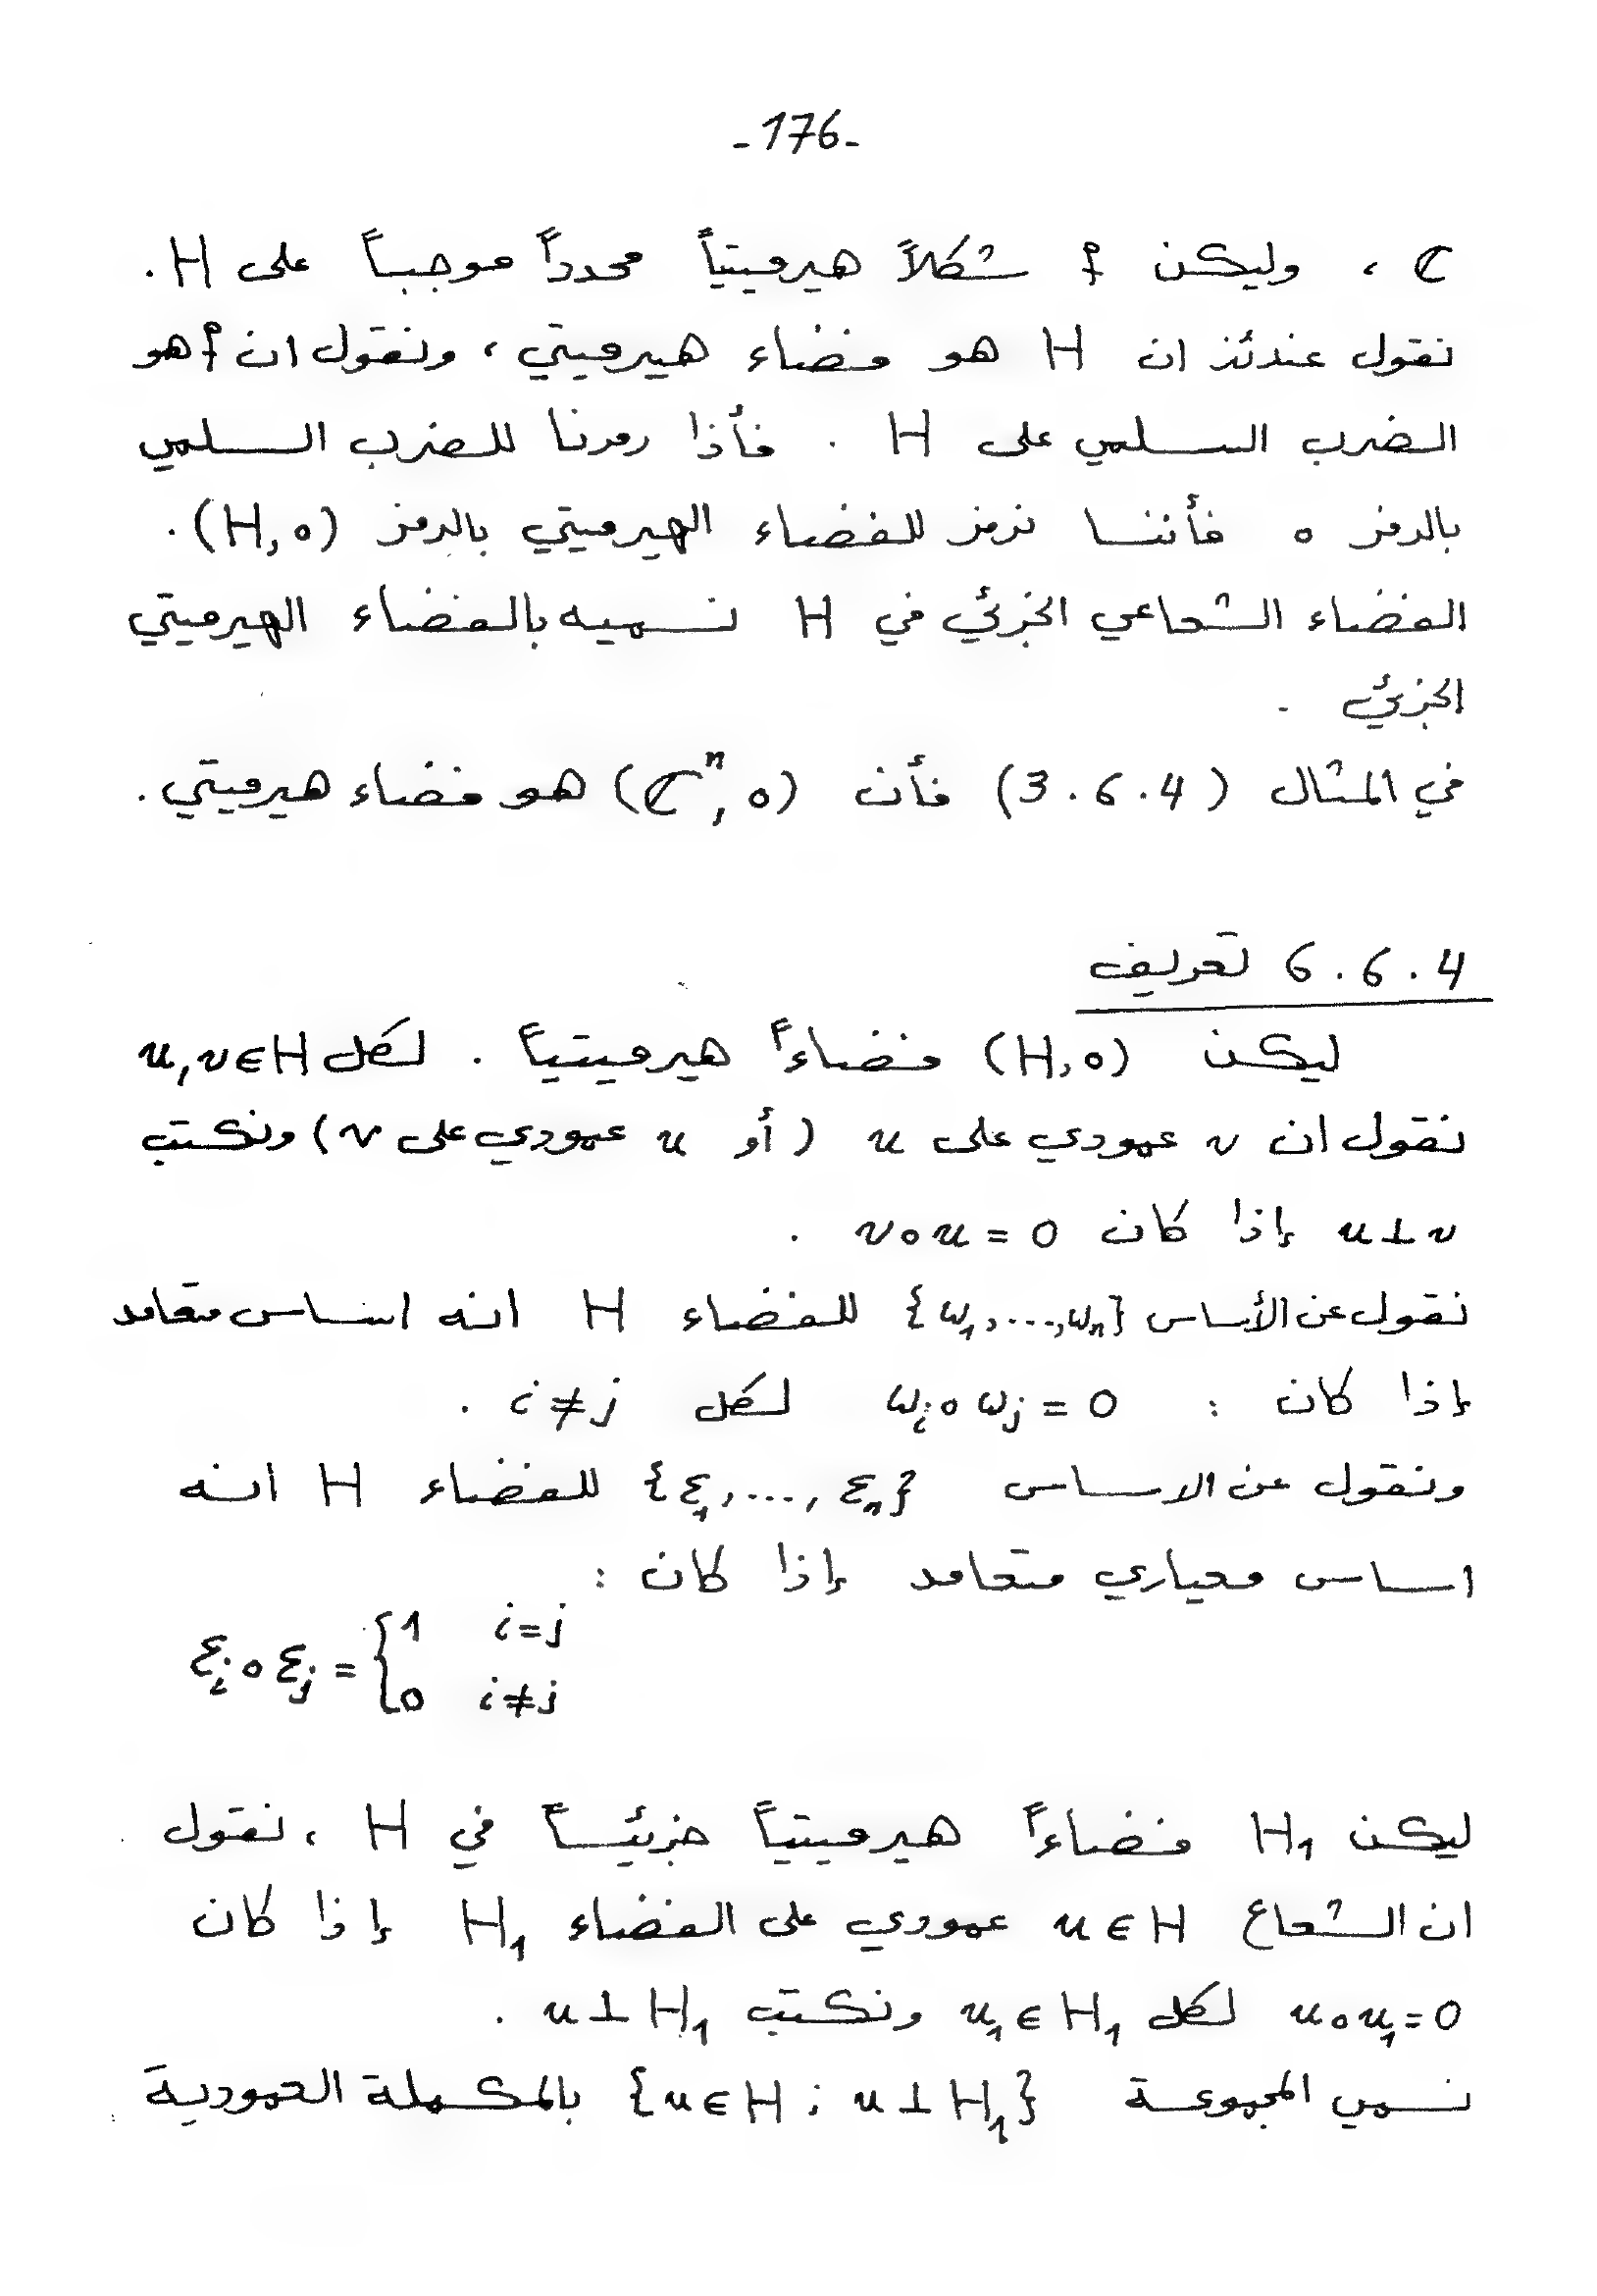 -176-
ℂ ، وليكن f شكلاً هيرميتياً محدداً موجباً على H .
نقول عندئذ ان H هو فضاء هيرميتي ، ونقول ان f هو
الضرب السلمي على H . فأذا رمزنا للضرب السلمي
بالرمز ∘ فأننا نرمز للفضاء الهيرميتي بالرمز (H,∘) .
الفضاء الشعاعي الجزئي في H نسميه بالفضاء الهيرميتي
الجزئي .
في المثال (3.6.4) فأن (ℂⁿ,∘) هو فضاء هيرميتي .
6.6.4 تعريف
ليكن (H,∘) فضاءاً هيرميتياً . لكل u,v∈H
نقول ان v عمودي على u (أو u عمودي على v) ونكتب
u⊥v إذا كان v∘u=0 .
نقول عن الأساس {ω₁,...,ωₙ} للفضاء H انه اساس متعامد
إذا كان : ωᵢ∘ωⱼ=0 لكل i≠j .
ونقول عن الاساس {ε₁,...,εₙ} للفضاء H انه
اساس معياري متعامد إذا كان :
εᵢ∘εⱼ = { 1 i=j
0 i≠j
ليكن H₁ فضاءاً هيرميتياً جزئيساً في H ، نقول
ان الشعاع u∈H عمودي على الفضاء H₁ إذا كان
u∘u₁=0 لكل u₁∈H₁ ونكتب u⊥H₁ .
نسمي المجموعة {u∈H ; u⊥H₁} بالمكملة العمودية